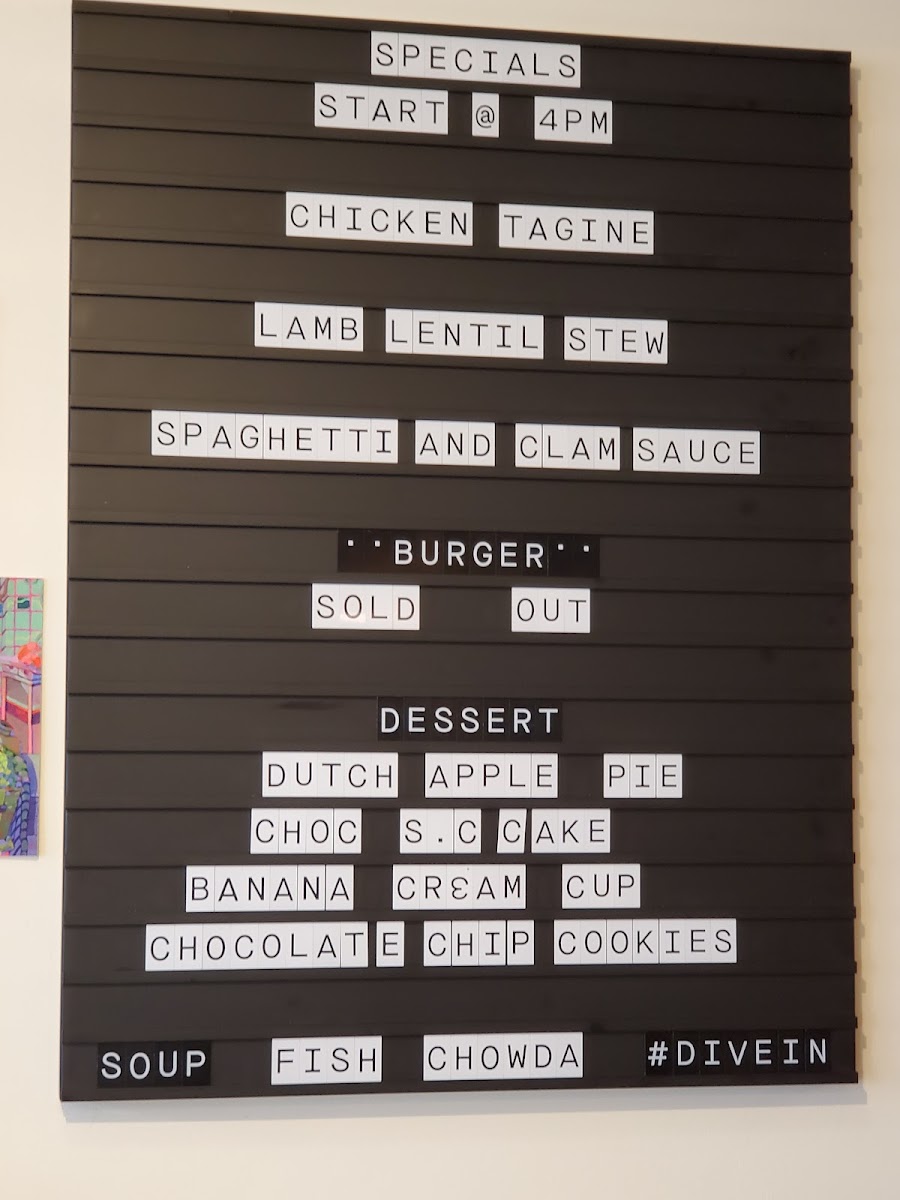 SPECIALS
START @ 4PM
CHICKEN TAGINE
LAMB LENTIL STEW
SPAGHETTI AND CLAM SAUCE
··BURGER··
SOLD OUT
DESSERT
DUTCH APPLE PIE
CHOC S.C CAKE
BANANA CRƐAM CUP
CHOCOLATE CHIP COOKIES
SOUP FISH CHOWDA #DIVEIN